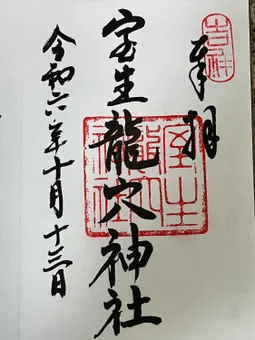 奉拝
吉祥
室生龍穴神社
室生龍穴神社
令和六年十月十三日